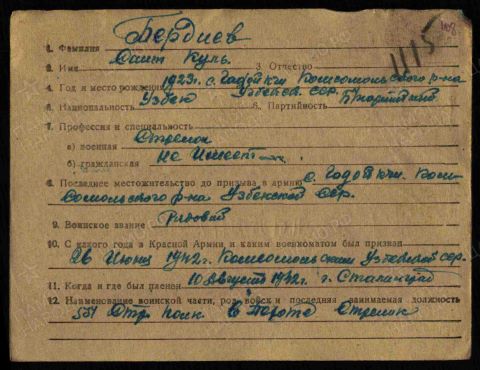 108
1115
1. Фамилия Бердиев
2. Имя Саит Куль 3. Отчество
4. Год и место рождения 1923г. с. Комсомольского р-на
Узбекс. сср.
5. Национальность Узбек 6. Партийность
7. Профессия и специальность
а) военная Стрелок
б) гражданская не имеет
8. Последнее местожительство до призыва в армию с.
сомольского р-на Узбекской сср.
9. Воинское звание Рядовой
10. С какого года в Красной Армии и каким военкоматом был призван
26 Июня 1942г. Комсомольским Узбекской сср.
11. Когда и где был пленен 10 Август 1942г. г. Сталинград
12. Наименование воинской части, род войск и последняя занимаемая должность
Стр. полк. Рота Стрелок